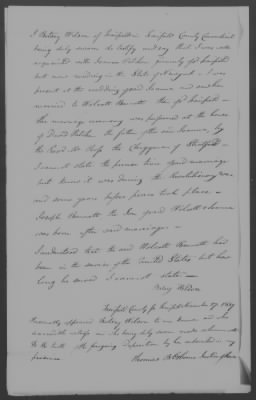 I Betsey Wilson of Fairfield in Fairfield County Connecticut
being duly sworn do testify and say that I was well
acquainted with Joanna Belchen formerly of Fairfield
but now residing in the State of I was
present at the wedding of said Joanna and saw her
married to Wolcott Bennett then of Fairfield
the marriage ceremony was performed at the house
of David the father of the said Joanna, by
the Revd Mr Ross the Clergyman of Stratfield
I cannot state the precise time of said marriage
but know it was during the Revolutionary war
and some years before peace took place
Joseph Bennett the Son of said Wolcott & Joanna
was born after said marriage
I understood that the said Wolcott Bennett had
been in the service of the United States but how
long he served I cannot state
Betsey Wilson
Fairfield County ss Fairfield November 27 1837
Personally appeared Betsey Wilson to me known and who
is a credible witness and she being duly sworn made solemn oath
to the truth of the foregoing deposition by her subscribed in my
presence
Thomas B Osborne